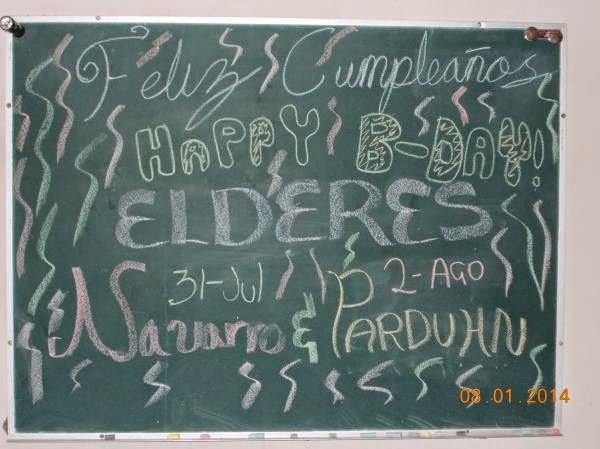 Feliz Cumpleaños
HAPPY B-DAY!
ELDERES
31-Jul 2-AGO
Navarro & PARDUHN
08.01.2014